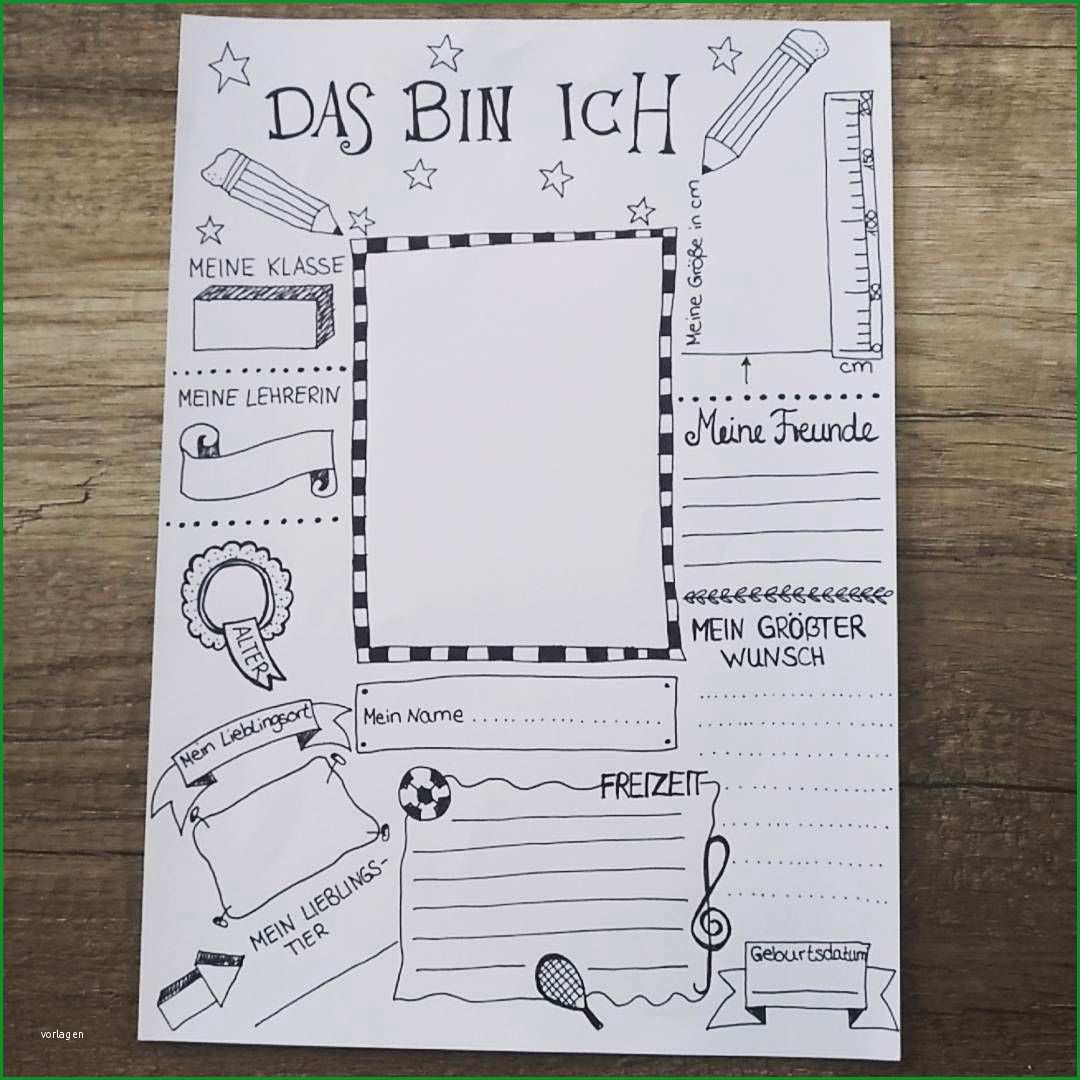 DAS BIN ICH
MEINE KLASSE
MEINE LEHRERIN
ALTER
Mein Lieblingsort
MEIN LIEBLINGS-
TIER
Mein Name
FREIZEIT
Meine Größe in cm
200
150
100
50
0
cm
Meine Freunde
MEIN GRÖßTER
WUNSCH
Geburtsdatum
vorlagen